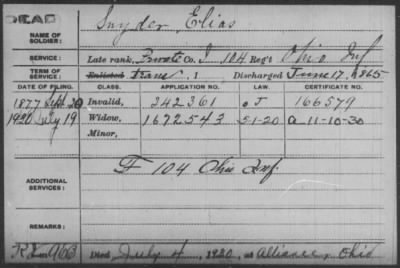 DEAD
Snyder, Elias
NAME OF
SOLDIER:
SERVICE: Late rank, Private Co. I, 104 Reg't Ohio Inf
TERM OF
SERVICE: Enlisted Trans , 1 Discharged June 17, 1865
DATE OF FILING. CLASS. APPLICATION NO. LAW. CERTIFICATE NO.
1877 Sept. 20 Invalid, 242361 J 166579
1920 July 19 Widow, 1672543 5-1-20 a 11-10-30
Minor,
F 104 Ohio Inf.
ADDITIONAL
SERVICES:
REMARKS:
Died July 4, 1920, at Alliance, Ohio